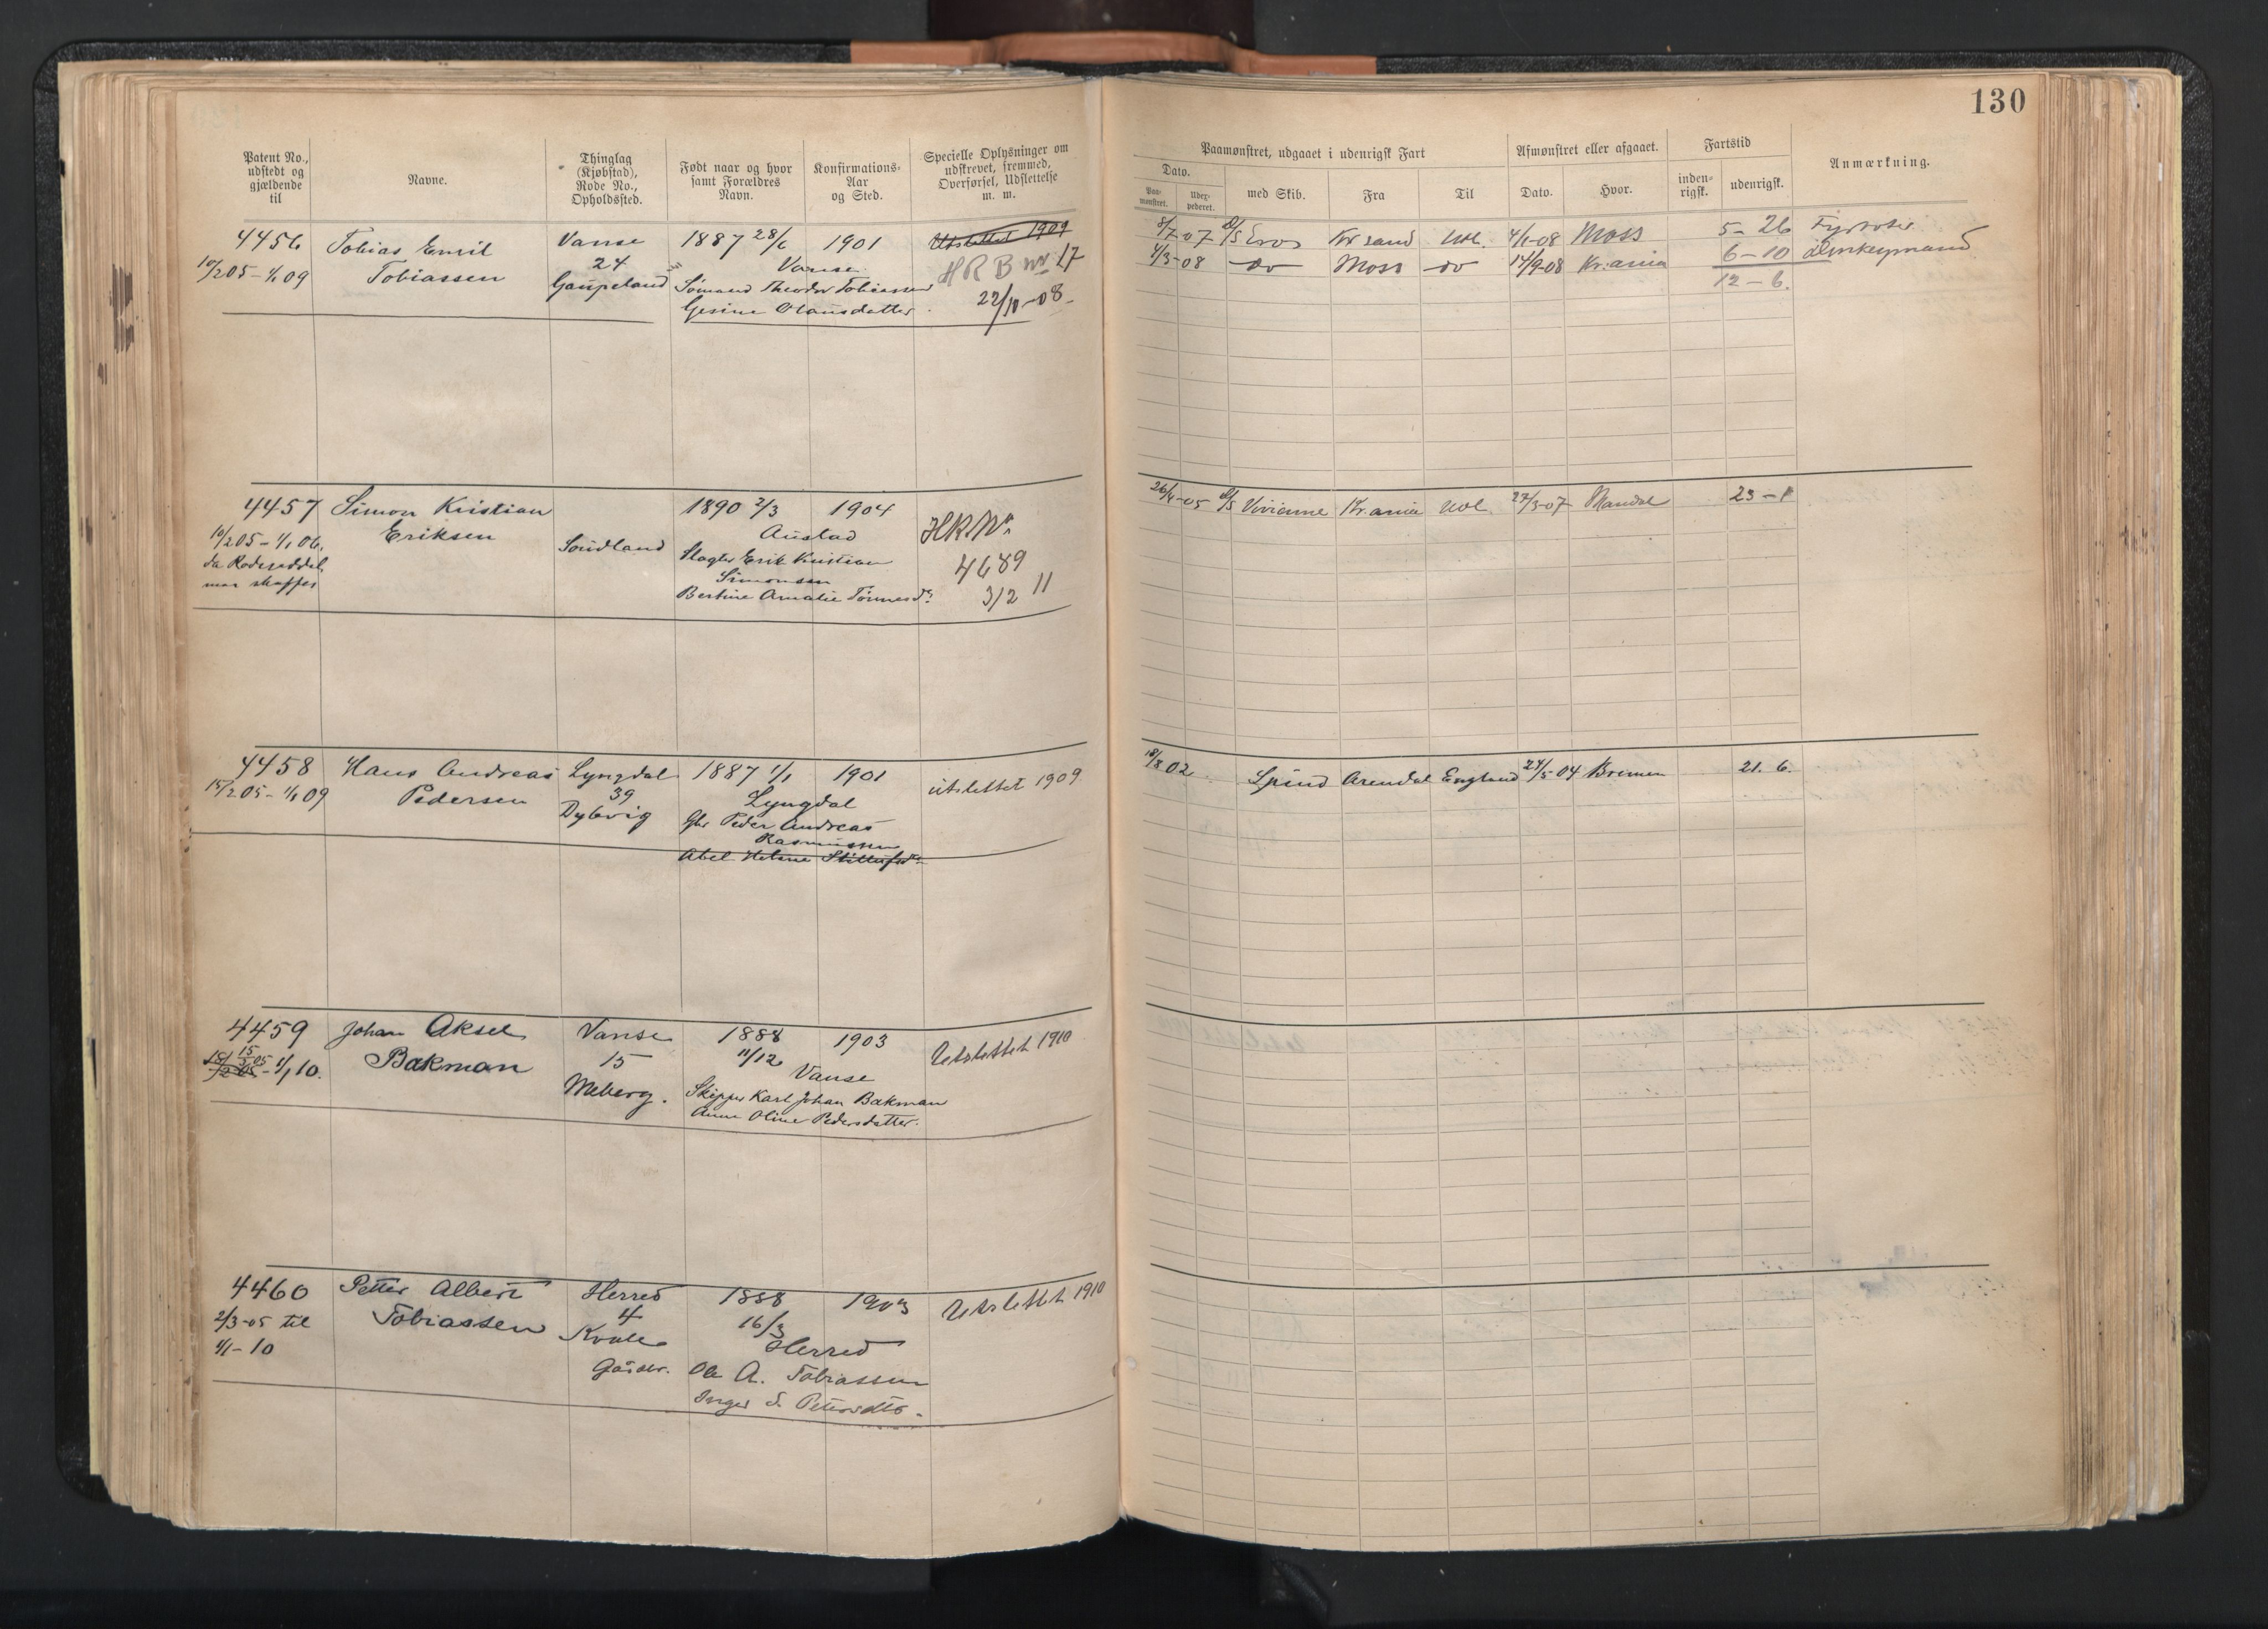 130
Patent No., udstedt og gjældende til
Navne.
Thinglag (Kjøbstad), Rode No., Opholdssted.
Født naar og hvor samt Forældres Navn.
Konfirmations-Aar og Sted.
Specielle Oplysninger om udskrevet, fremmed, Overførsel, Udslettelse m. m.
Paamønstret, udgaaet i udenrigsk Fart
Afmønstret eller afgaaet.
Fartstid
Anmærkning.
Dato.
Paa-mønstret.
Udex-pederet.
med Skib.
Fra
Til
Dato.
Hvor.
inden-rigsk.
udenrigsk.
4456 Tobias Emil Vanse 1887 28/6 1901 Utslettet 1909
10/2 05 - 1/1 09 Tobiassen 24 Vanse HRB No 17
Gaupeland Sømand Theodor Tobiassen 22/10-08
Gesine Olausdatter
8/7 07 D/S Eros Kr sand Udl. 4/1-08 Moss 5-26 Fyrbøter
4/3-08 do Moss do 14/9-08 Kr.ania 6-10 Donkeymand
12-6.
4457 Simon Kristian 1890 2/3 1904
10/2 05 - 1/1 06. Eriksen Soudland Austad HR No
da Rodeseddel Slagter Erik Kristian 4689
maa skaffes Simonsen 3/2 11
Bertine Amalie Tønnesdr
26/4-05 D/S Vivienne Kr.ania Udl. 27/3-07 Mandal 23-1
4458 Hans Andreas Lyngdal 1887 1/1 1901 utslettet 1909
15/2 05 - 1/1 09 Pedersen 39 Lyngdal
Dybvig Gbr Peder Andreas
Rasmussen
Abel Helene
18/8 02 Spind Arendal England 24/5-04 Bremen 21. 6.
4459 Johan Aksel Vanse 1888 1903 Utslettet 1910
15/2 05 - 1/1 10. Bakman 15 11/12 Vanse
Meberg. Skipper Karl Johan Bakman
Anne Oline Pedersdatter.
4460 Petter Albert Herred 1888 1903 Utslettet 1910
2/3-05 til Tobiassen 4 16/3
1/1-10 Kvale Herred
Gårdbr. Ole A. Tobiassen
Inger S. Pettersdtr.